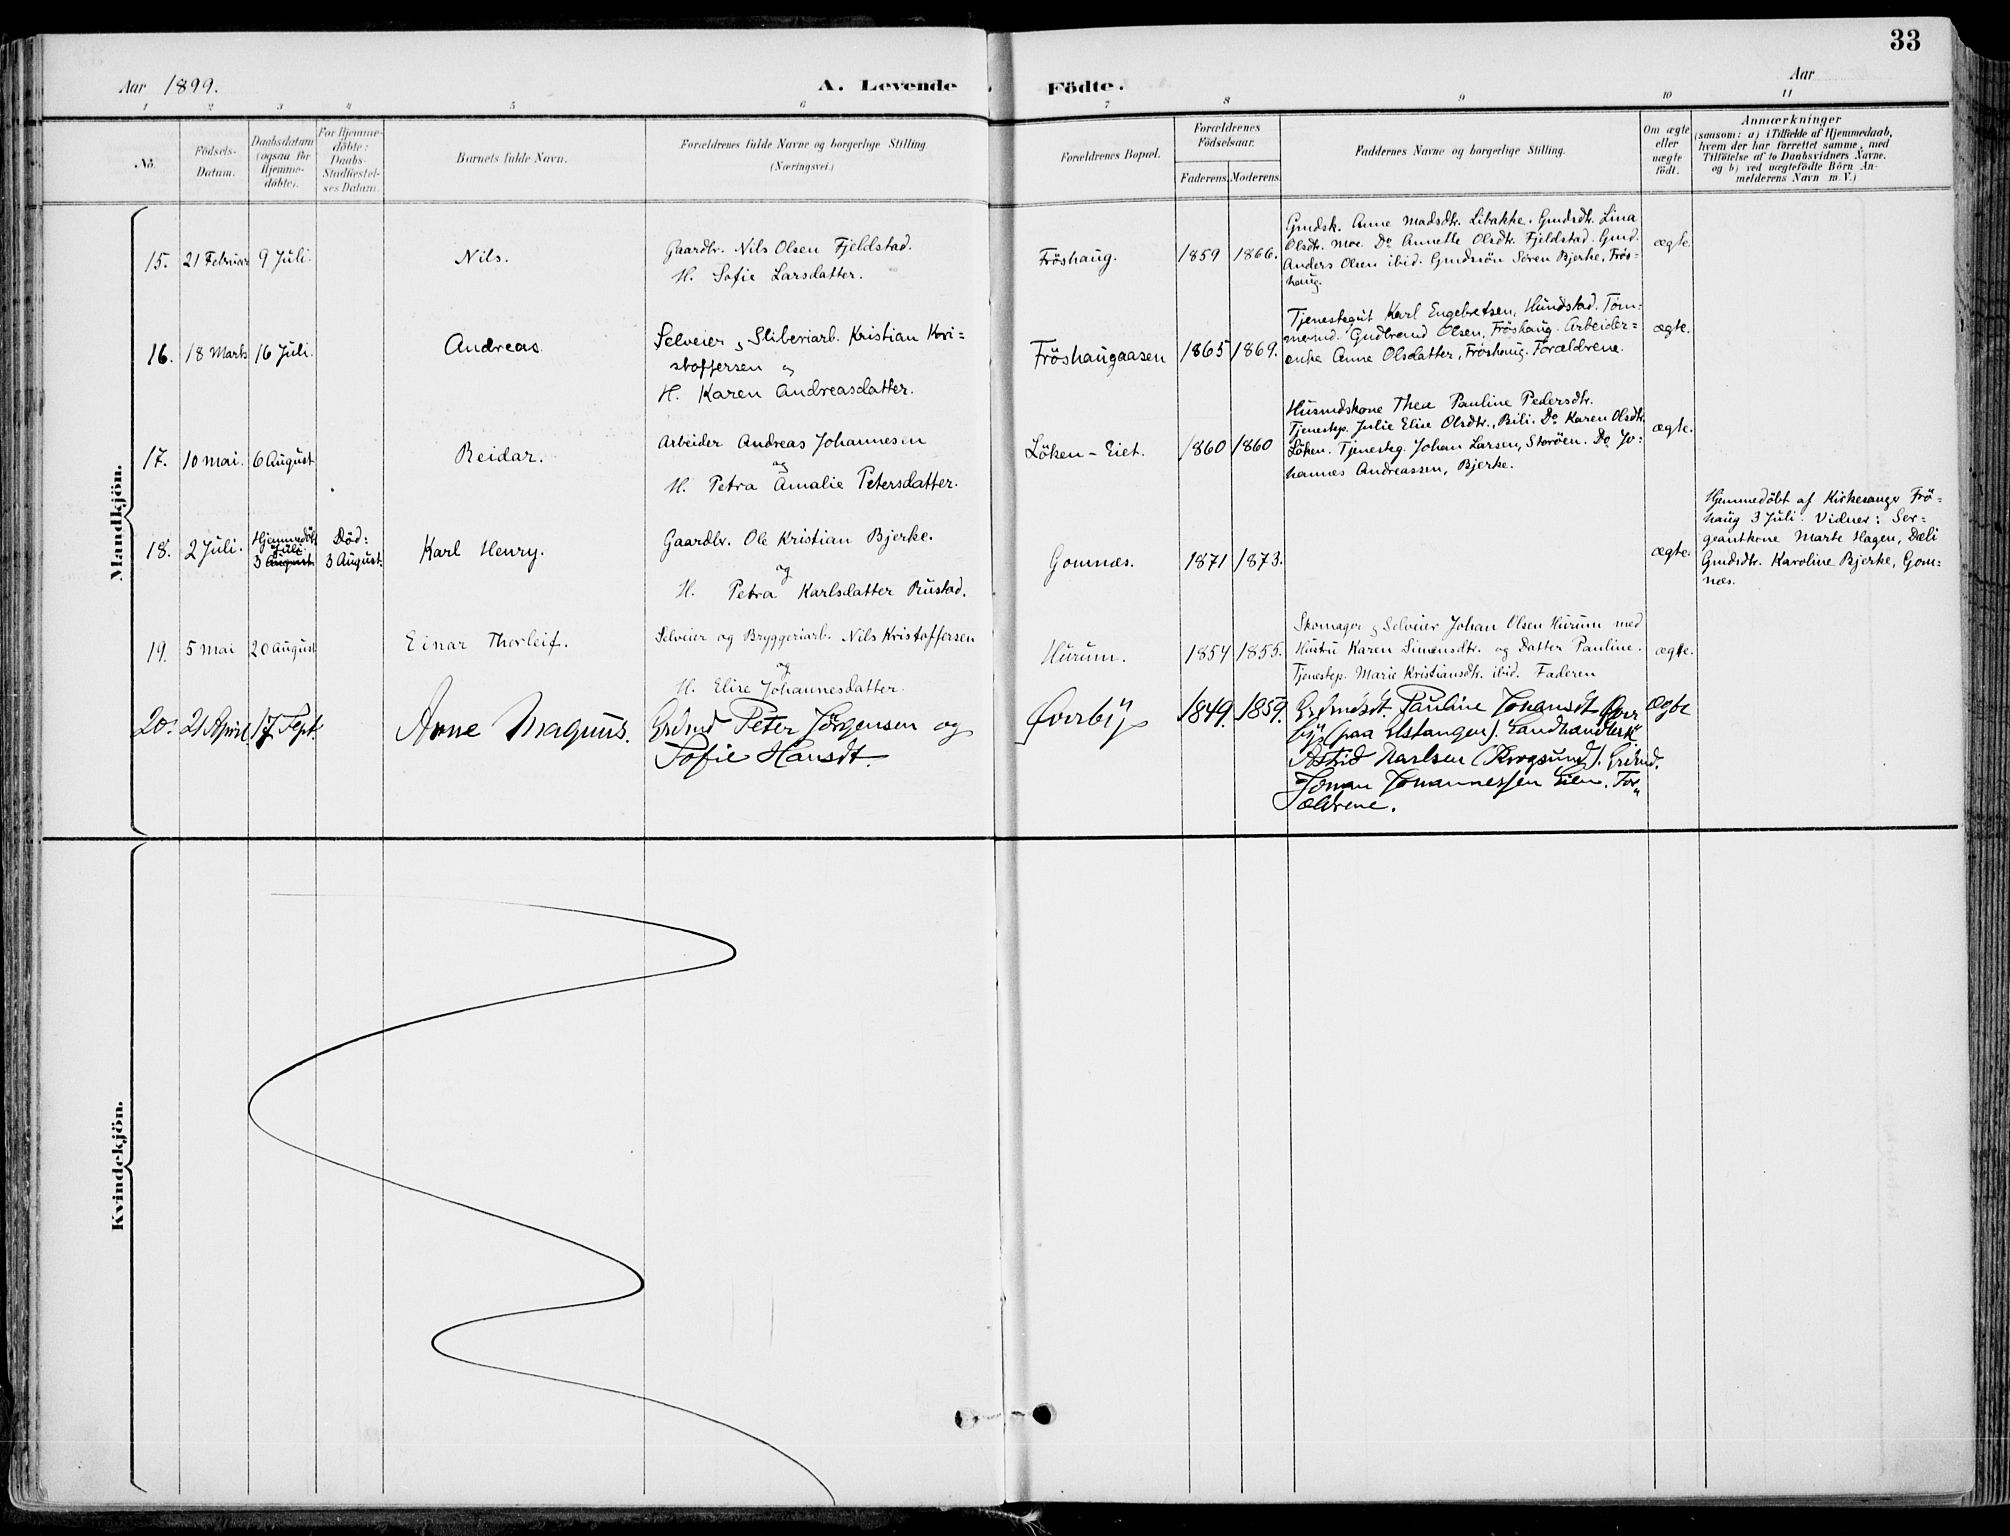 33
Aar 1899.
A. Levende Födte.
Aar
1 2 3 4 5 6 7 8 9 10 11
No.
Födsels-
Datum.
Daabsdatum
(ogsaa for
Hjemme-
döbte).
For Hjemme-
döbte:
Daabs-
Stadfæstel-
ses Datum.
Barnets fulde Navn.
Forældrenes fulde Navne og borgerlige Stilling
(Næringsvei.)
Forældrenes Bopæl.
Forældrenes
Födselsaar.
Faderens. Moderens.
Faddernes Navne og borgerlige Stilling.
Om ægte
eller
uægte
födt.
Anmærkninger
(saasom: a) i Tilfælde af Hjemmedaab,
hvem der har forrettet samme, med
Tilföielse af to Daabsvidners Navne.
og b) ved uægtefödte Börn An-
melderens Navn m. V.)
Mandkjön.
15. 21 Februar 9 Juli. Nils.
Gaardbr. Nils Olsen Fjeldstad.
H. Sofie Larsdatter.
Fröshaug. 1859 1866.
Gmdsk. Anne Madsdtr. Libakke. Gmdsdtr. Lina
Olsdtr. Moe. Do Annette Olsdtr. Fjeldstad. Gmd.
Anders Olsen ibid. Gmdssön Sören Bjerke, Frös-
haug.
ægte.
16. 18 Marts 16 Juli. Andreas.
Selveier og Sliberiarb. Kristian Kri-
stoffersen og
H. Karen Andreasdatter.
Fröshaugaasen 1865 1869.
Tjenestegut Karl Engebretsen, Hundstad. Töm-
mermd. Gudbrand Olsen, Fröshaug. Arbeider-
enke Anne Olsdatter, Fröshaug. Forældrene.
ægte.
17. 10 Mai. 6 August Reidar.
Arbeider Andreas Johannesen
og
H. Petra Amalie Petersdatter.
Löken-Eiet. 1860 1860
Husmdskone Thea Pauline Pedersdtr.
Tjenestep. Julie Elise Olsdtr., Bili. Do Karen Olsdtr.
Löken. Tjenesteg. Johan Larsen, Storöen. Do Jo-
hannes Andreassen, Bjerke.
ægte.
18. 2 Juli. Hjemmedöbt
Juli
3 August
Död:
3 August.
Karl Henry.
Gaardbr. Ole Kristian Bjerke.
og
H. Petra Karlsdatter Rustad.
Gomnæs. 1871 1873.
ægte.
Hjemmedöbt af Kirkesanger Frö-
haug 3 Juli. Vidner: Ser-
geantkone Marte Hagen, Dæli
Gmdsdtr. Karoline Bjerke, Gom-
næs.
19. 5 Mai 20 August Einar Thorleif.
Selveier og Bryggeriarb. Nils Kristoffersen
og
H. Elise Johannesdatter.
Hurum. 1854 1855.
Skomager og Selveier Johan Olsen Hurum med
Hustru Karen Simensdtr. og Datter Pauline.
Tjenestep. Marie Kristiansdtr. ibid. Faderen
ægte.
20. 21 April 17 Sept. Arne Magnus.
Grdmd Peter Jörgensen og
Sofie Hansdt.
Överby 1849. 1859.
Grdmdsdt. Pauline Johansdt. Över
by (paa Ulstangen). Landhandlersk.
Astrid Karlsen (Krogsund). Grdmd.
Johan Johannessen Eilen. For
ældrene.
ægte
Kvindekjön.